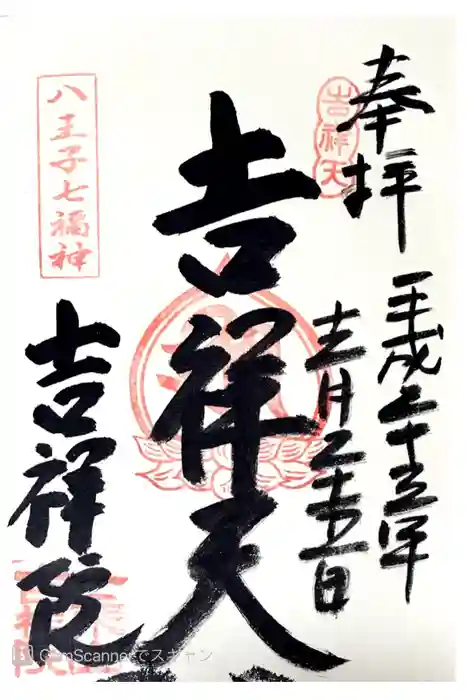 奉拝
平成二十五年
十一月二十五日
吉祥天
吉祥天
八王子七福神
吉祥院
CamScannerでスキャン